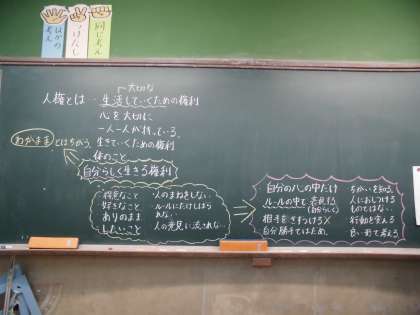 ほかの
考え
つけたし
同じ考え
大切な
人権とは・生活していくための権利
心を大切に
一人一人がもっている。
わがままとはちがう。生きていくための権利
体のこと
自分らしく生きる権利
得意なこと
好きなこと
ありのまま
したいこと
・人のまねをしない
・ルールにだけしばられない
人の意見に流されない
自分の心の中だけ
ルールの中で表現する
(自分らしく)
相手をきずつける×
自分勝手ではだめ。
・ちがいを知る。
人におしつける
ものではない。
・行動を変える
良い形で考える